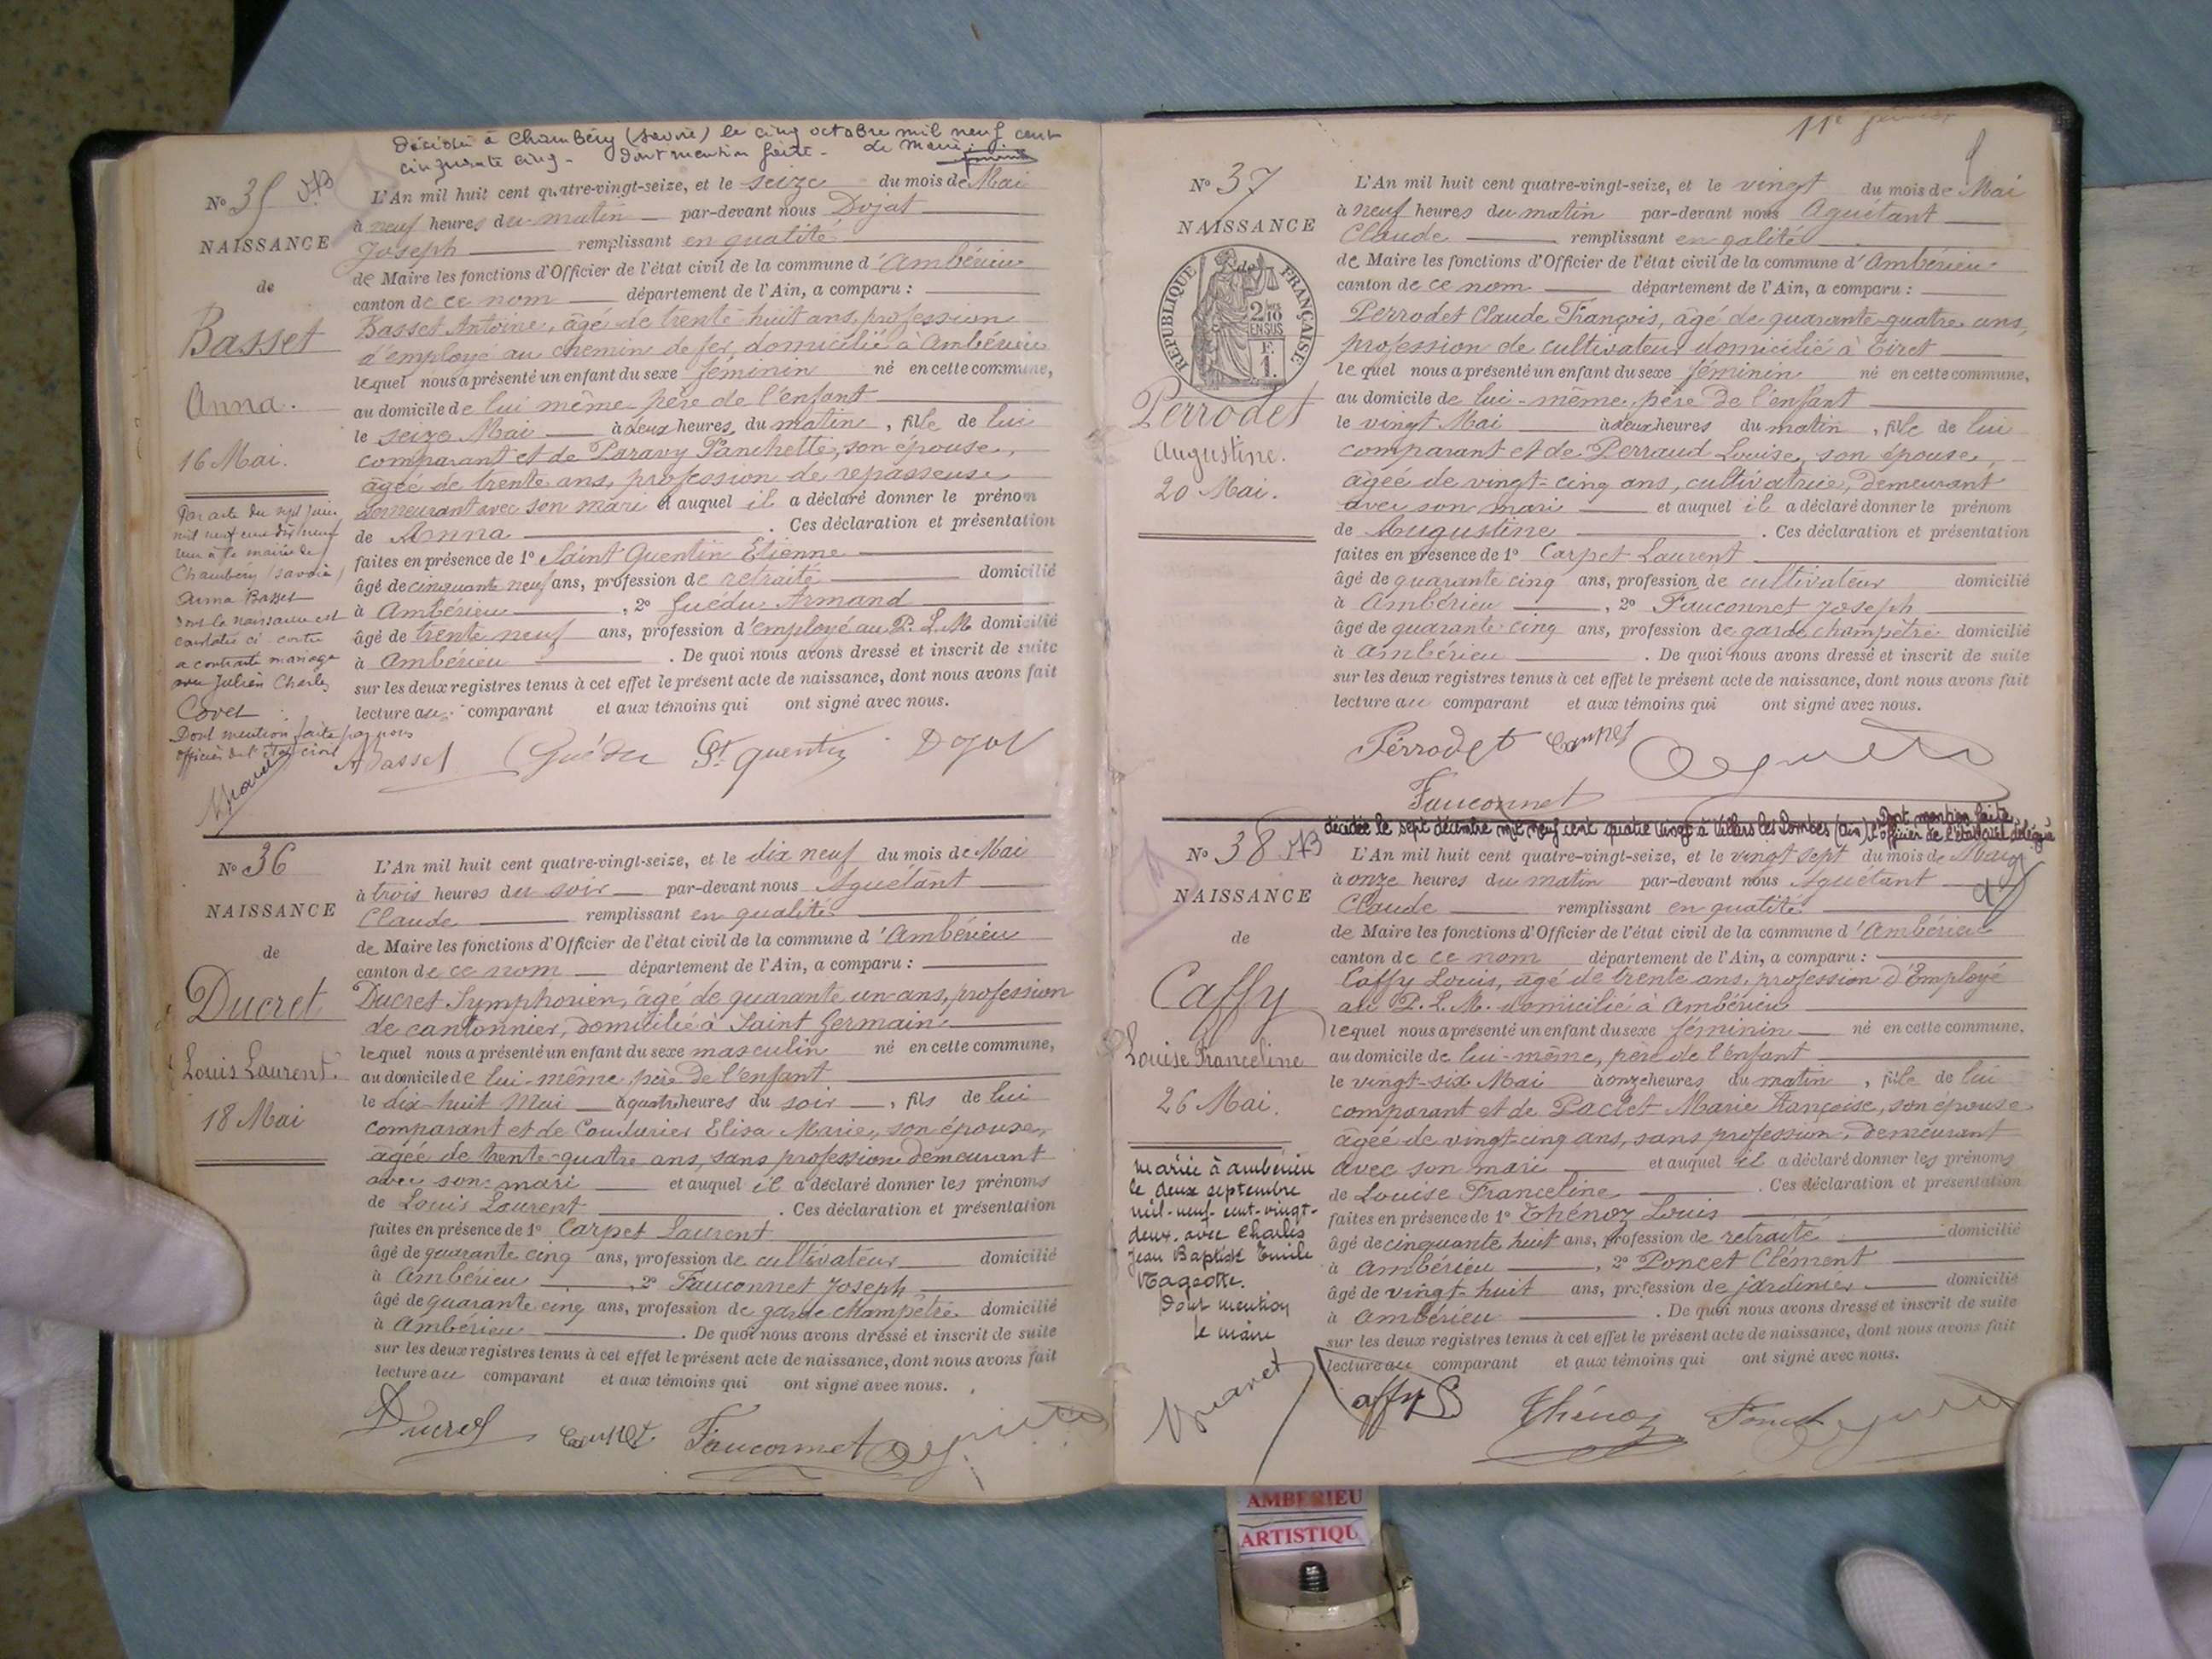 Décédée à Chambéry (Savoie) le cinq octobre mil neuf cent
cinquante cinq. Dont mention faite. Le Maire.
N° 35
NAISSANCE
de
Basset
Anna.
16 Mai.
Par acte du sept juin
mil neuf cent dix neuf
reçu à la mairie de
Chambéry (Savoie)
Anna Basset
dont la naissance est
constatée ci contre
a contracté mariage
avec Julien Charles
Covet
Dont mention faite par nous
officier de l'état civil
L'An mil huit cent quatre-vingt-seize, et le seize du mois de Mai
à neuf heures du matin par-devant nous Dojat
Joseph remplissant en qualité
de Maire les fonctions d'Officier de l'état civil de la commune d'Ambérieu
canton de ce nom département de l'Ain, a comparu :
Basset Antoine, âgé de trente-huit ans, profession
d'employé au chemin de fer, domicilié à Ambérieu
lequel nous a présenté un enfant du sexe féminin né en cette commune,
au domicile de lui même père de l'enfant
le seize Mai à deux heures du matin, fille de lui
comparant et de Paravy Fanchette, son épouse,
âgée de trente ans, profession de repasseuse
demeurant avec son mari et auquel il a déclaré donner le prénom
de Anna. Ces déclaration et présentation
faites en présence de 1° Saint Quentin Etienne
âgé de cinquante neuf ans, profession de retraité domicilié
à Ambérieu, 2° Guédu Armand
âgé de trente neuf ans, profession d'employé au P. L. M. domicilié
à Ambérieu. De quoi nous avons dressé et inscrit de suite
sur les deux registres tenus à cet effet le présent acte de naissance, dont nous avons fait
lecture au comparant et aux témoins qui ont signé avec nous.
A Basset Guédu St quentin Dojat
N° 36
NAISSANCE
de
Ducret
Louis Laurent.
18 Mai
L'An mil huit cent quatre-vingt-seize, et le dix neuf du mois de Mai
à trois heures du soir par-devant nous Aguétant
Claude remplissant en qualité
de Maire les fonctions d'Officier de l'état civil de la commune d'Ambérieu
canton de ce nom département de l'Ain, a comparu :
Ducret Symphorien, âgé de quarante un ans, profession
de cantonnier, domicilié à Saint Germain
lequel nous a présenté un enfant du sexe masculin né en cette commune,
au domicile de lui-même père de l'enfant
le dix-huit Mai à quatre heures du soir, fils de lui
comparant et de Coudurier Elisa Marie, son épouse,
âgée de trente-quatre ans, sans profession demeurant
avec son mari et auquel il a déclaré donner les prénoms
de Louis Laurent. Ces déclaration et présentation
faites en présence de 1° Carpet Laurent
âgé de quarante cinq ans, profession de cultivateur domicilié
à Ambérieu, 2° Fauconnet Joseph
âgé de quarante cinq ans, profession de garde champêtre domicilié
à Ambérieu. De quoi nous avons dressé et inscrit de suite
sur les deux registres tenus à cet effet le présent acte de naissance, dont nous avons fait
lecture au comparant et aux témoins qui ont signé avec nous.
Ducret Carpet Fauconnet Aguétant
11e
N° 37
NAISSANCE
de
RÉPUBLIQUE FRANÇAISE
2/10 EN SUS
F. 1.
Perrodet
Augustine.
20 Mai.
L'An mil huit cent quatre-vingt-seize, et le vingt du mois de Mai
à neuf heures du matin par-devant nous Aguétant
Claude remplissant en qalité
de Maire les fonctions d'Officier de l'état civil de la commune d'Ambérieu
canton de ce nom département de l'Ain, a comparu :
Perrodet Claude François, âgé de quarante-quatre ans,
profession de cultivateur domicilié à Tiret
lequel nous a présenté un enfant du sexe féminin né en cette commune,
au domicile de lui-même, père de l'enfant
le vingt Mai à deux heures du matin, fille de lui
comparant et de Perraud Louise, son épouse,
âgée de vingt-cinq ans, cultivatrice, demeurant
avec son mari et auquel il a déclaré donner le prénom
de Augustine. Ces déclaration et présentation
faites en présence de 1° Carpet Laurent
âgé de quarante cinq ans, profession de cultivateur domicilié
à Ambérieu, 2° Fauconnet Joseph
âgé de quarante cinq ans, profession de garde champêtre domicilié
à Ambérieu. De quoi nous avons dressé et inscrit de suite
sur les deux registres tenus à cet effet le présent acte de naissance, dont nous avons fait
lecture au comparant et aux témoins qui ont signé avec nous.
Perrodet Carpet Aguétant
Fauconnet
décédée le sept décembre mil neuf cent quatre vingt à Villars les Dombes (Ain) Dont mention faite, l'officier de l'état civil délégué
N° 38
NAISSANCE
de
Caffy
Louise Franceline
26 Mai.
mariée à ambérieu
le deux septembre
mil-neuf-cent-vingt-
deux, avec Charles
Jean Baptiste Emile
Dont mention
le maire
L'An mil huit cent quatre-vingt-seize, et le vingt sept du mois de Mai
à onze heures du matin par-devant nous Aguétant
Claude remplissant en qualité
de Maire les fonctions d'Officier de l'état civil de la commune d'Ambérieu
canton de ce nom département de l'Ain, a comparu :
Caffy Louis, âgé de trente ans, profession d'Employé
au P. L. M. domicilié à Ambérieu
lequel nous a présenté un enfant du sexe féminin né en cette commune,
au domicile de lui-même, père de l'enfant
le vingt-six Mai à onze heures du matin, fille de lui
comparant et de Paclet Marie Françoise, son épouse
âgée de vingt-cinq ans, sans profession, demeurant
avec son mari et auquel il a déclaré donner les prénoms
de Louise Franceline. Ces déclaration et présentation
faites en présence de 1° Thénoz Louis
âgé de cinquante huit ans, profession de retraité domicilié
à Ambérieu, 2° Poncet Clément
âgé de vingt-huit ans, profession de jardinier domicilié
à Ambérieu. De quoi nous avons dressé et inscrit de suite
sur les deux registres tenus à cet effet le présent acte de naissance, dont nous avons fait
lecture au comparant et aux témoins qui ont signé avec nous.
Caffy Thénoz Poncet Aguétant
AMBERIEU
ARTISTIQU